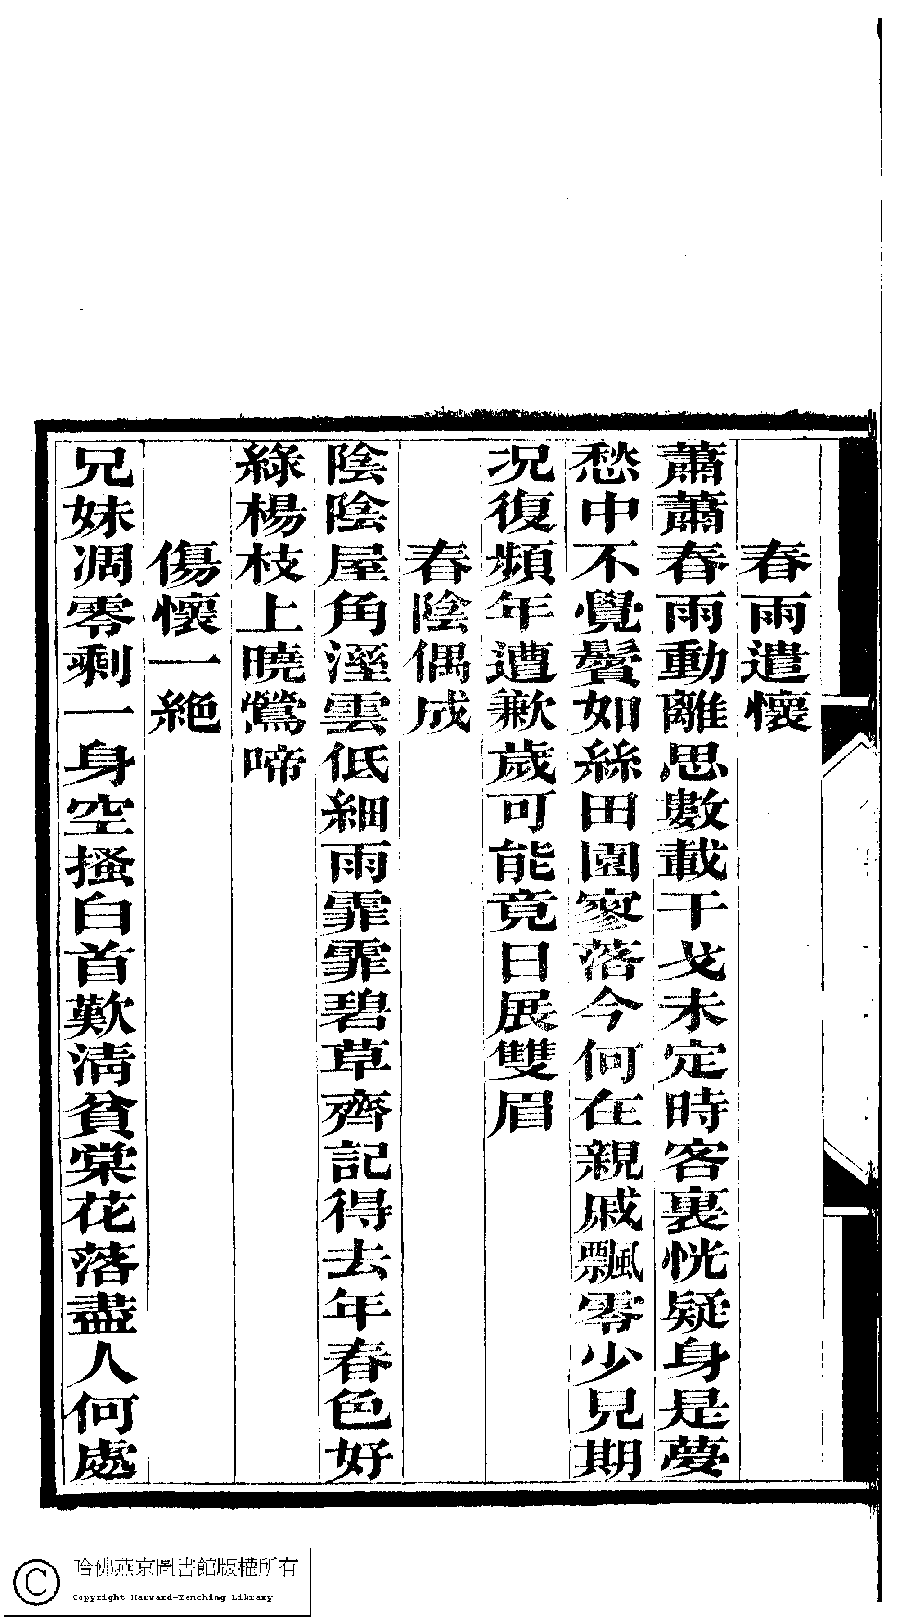 春雨遣懷
蕭蕭春雨動離思數載干戈未定時客裏恍疑身是夢
愁中不覺鬢如絲田園寥落今何在親戚飄零少見期
況復頻年遭歉歲可能竟日展雙眉
春陰偶成
陰陰屋角溼雲低細雨霏霏碧草齊記得去年春色好
綠楊枝上曉鶯啼
傷懷一絶
兄妹凋零剩一身空搔白首歎淸貧棠花落盡人何處
哈佛燕京圖書館版權所有
Copyright Harvard-Yenching Library